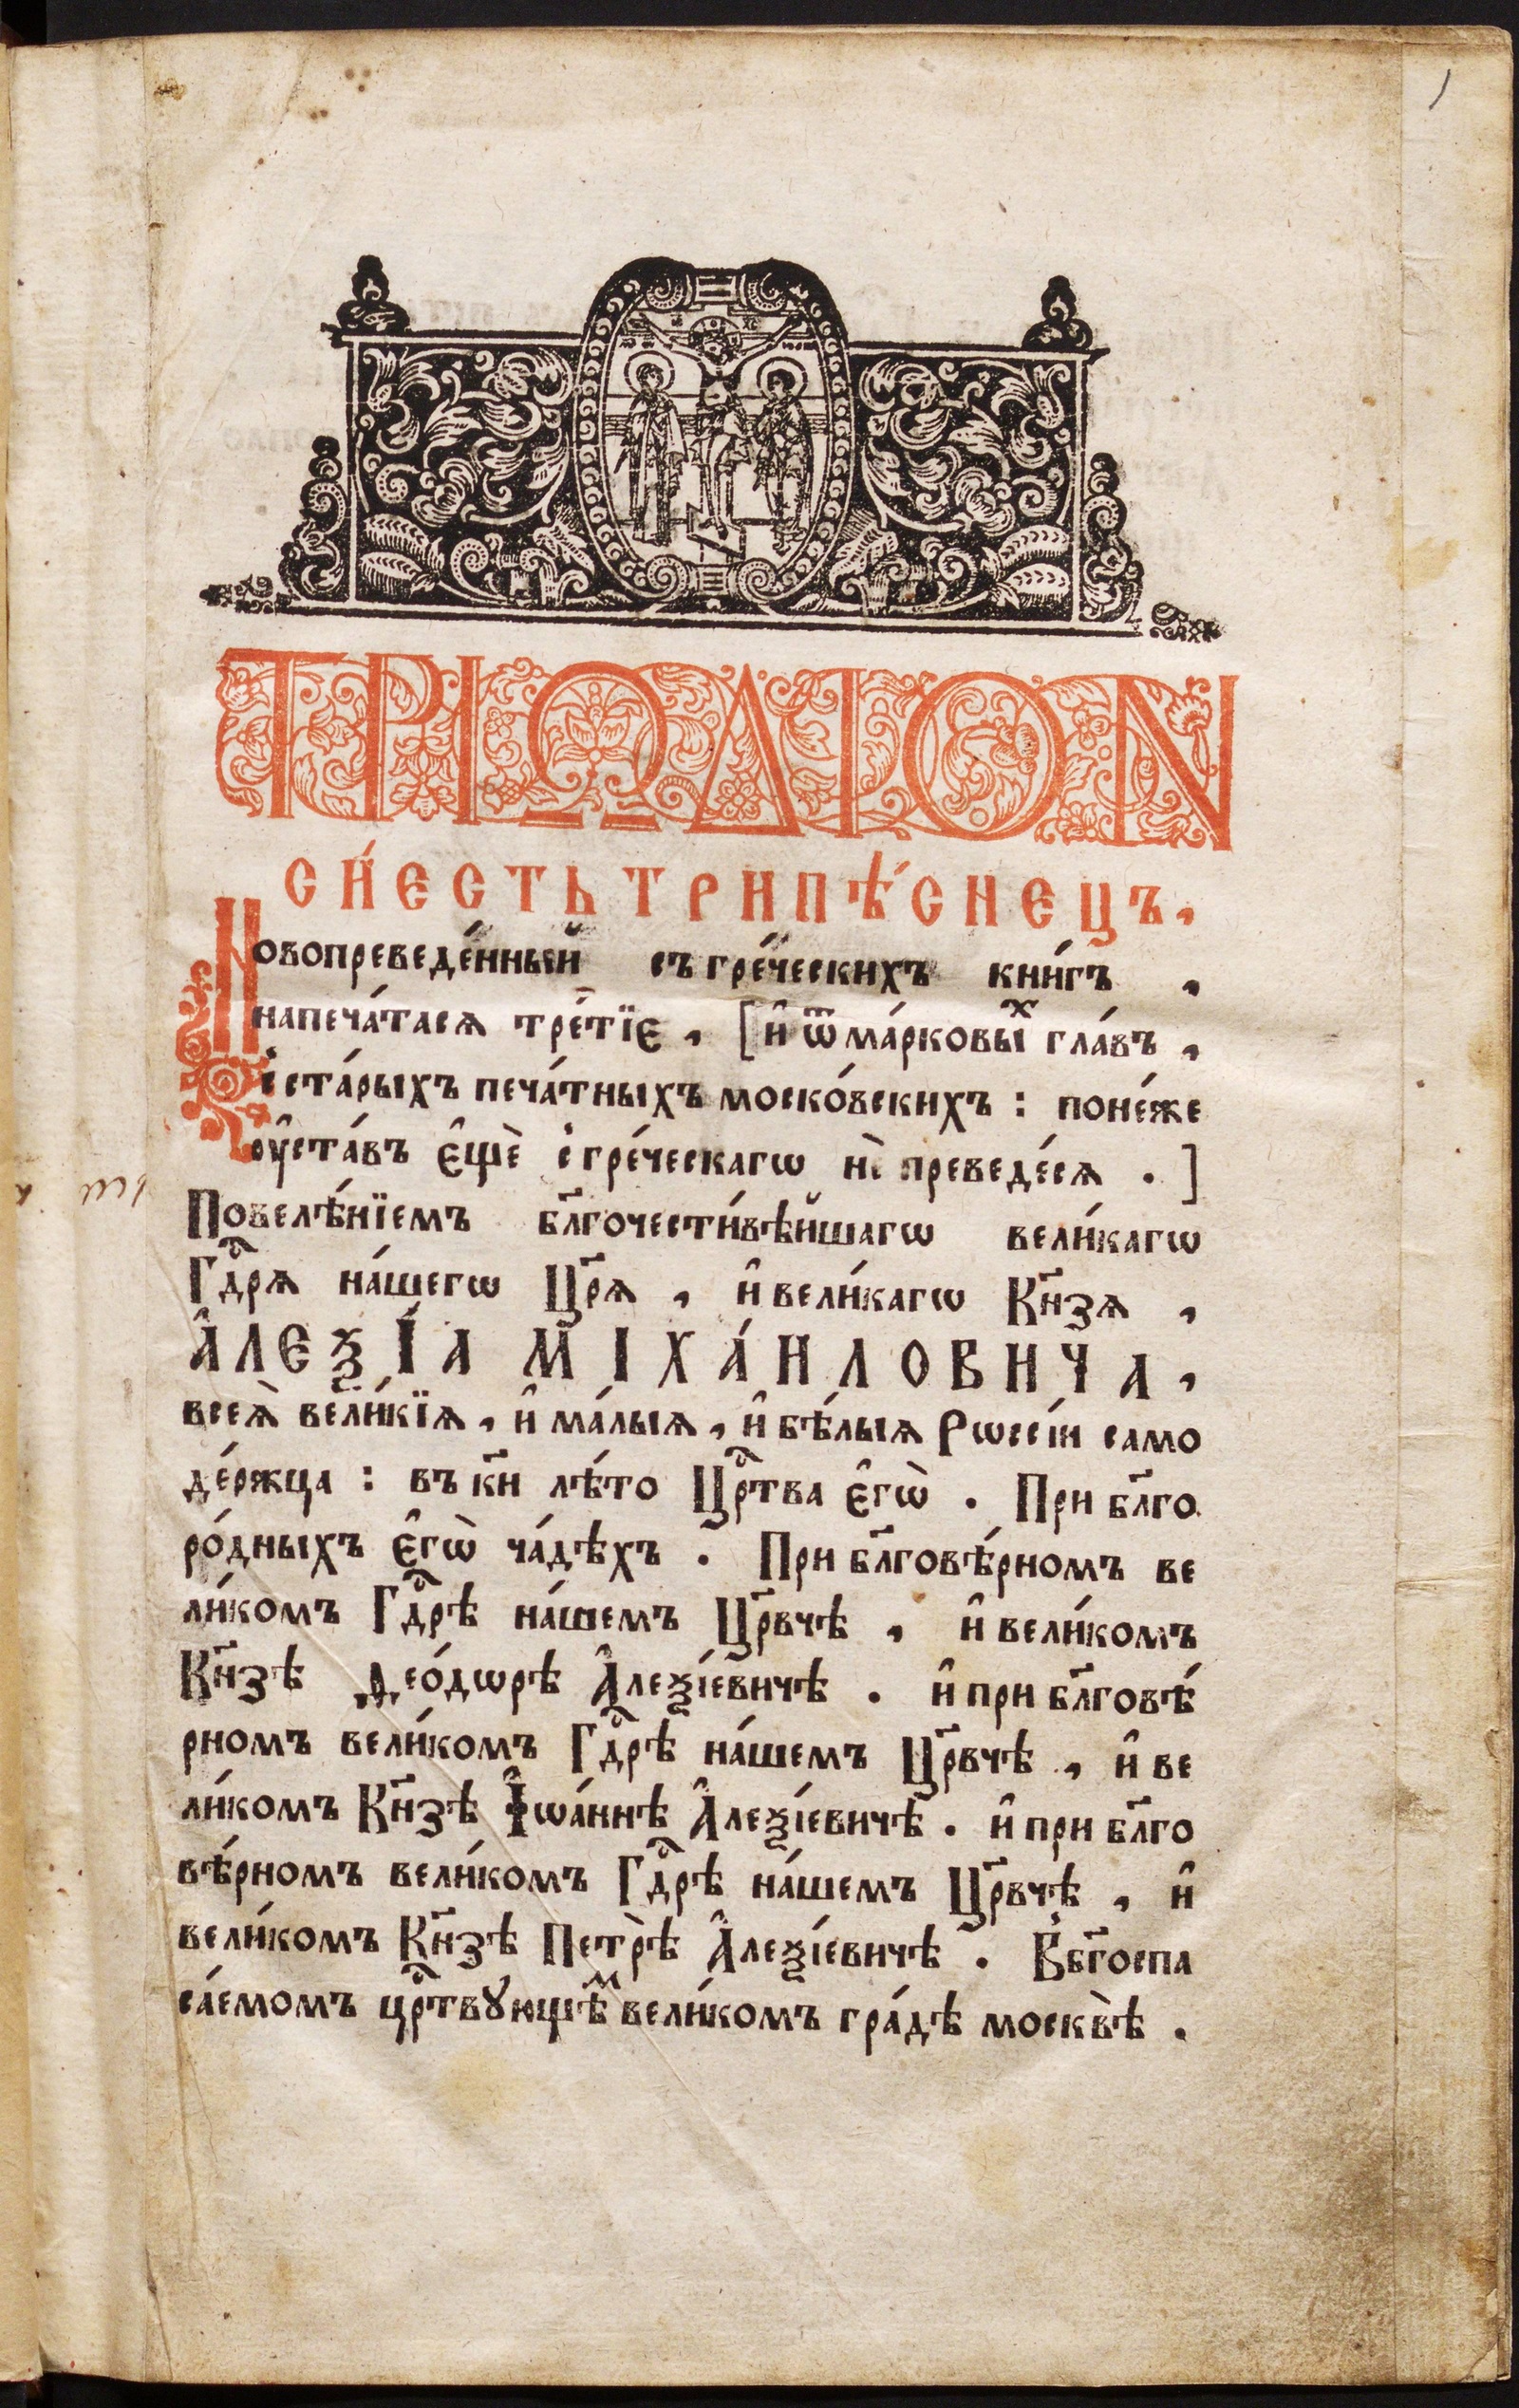 1
ТРІѠДІОN
СИ́ЕСТЬ ТРИПѢ́СНЕЦЪ,
Новопреведе́нный съ гре́ческихъ кни́гъ ,
напеча́тася тре́тїе , [ и҆ ѿ ма́рковыⷯ гла́въ ,
і ста́рыхъ печа́тныхъ моско́вскихъ : поне́же
оу҆ста́въ є҆щѐ с гре́ческагѡ нѐ преведе́ся . ]
Повелѣ́нїемъ бл҃гочести́вѣйшагѡ вели́кагѡ
Гдⷭ҇рѧ на́шегѡ Цр҃ѧ , и҆ вели́кагѡ Кн҃зѧ ,
А҆ЛЕѮІ́А МІХА́ИЛОВИЧА ,
всеѧ̀ вели́кїѧ , и҆ ма́лыѧ , и҆ бѣ́лыѧ Рѡссі́и само
де́ржца : въ к҃и лѣ́то Црⷭ҇тва є҆гѡ̀ . При бл҃го
ро́дныхъ є҆гѡ̀ ча́дѣхъ . При бл҃говѣ́рномъ ве
ли́комъ Гдⷭ҇рѣ на́шемъ Цр҃вчѣ , и҆ вели́комъ
Кн҃зѣ Ѳео́дѡрѣ А҆леѯі́евичѣ . и҆ при бл҃говѣ́
рномъ вели́комъ Гдⷭ҇рѣ на́шемъ Цр҃вчѣ , и҆ ве
ли́комъ Кн҃зѣ І҆ѡа́ннѣ А҆леѯі́евичѣ . и҆ при бл҃го
вѣ́рномъ вели́комъ Гдⷭ҇рѣ на́шемъ Цр҃вчѣ , и҆
вели́комъ Кн҃зѣ Петрѣ̀ А҆леѯі́евичѣ . В бг҃оспа
са́емомъ црⷭ҇твꙋющѣⷨ вели́комъ гра́дѣ москвѣ̀ .